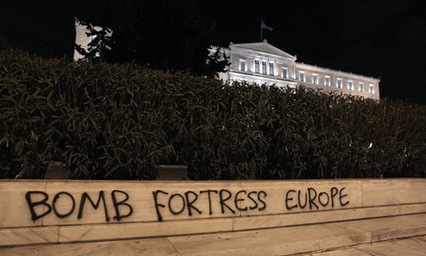 BOMB FORTRESS EUROPE